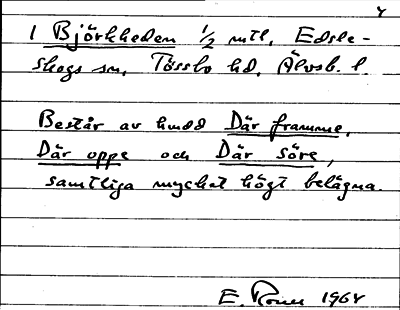 4
1 Björkheden 1/2 mtl, Edsle-
skogs sn, Tössbo hd, Älvsb. l.
Består av hudd Där framme,
Där oppe och Där söre,
samtliga mycket högt belägna.
E. 1964